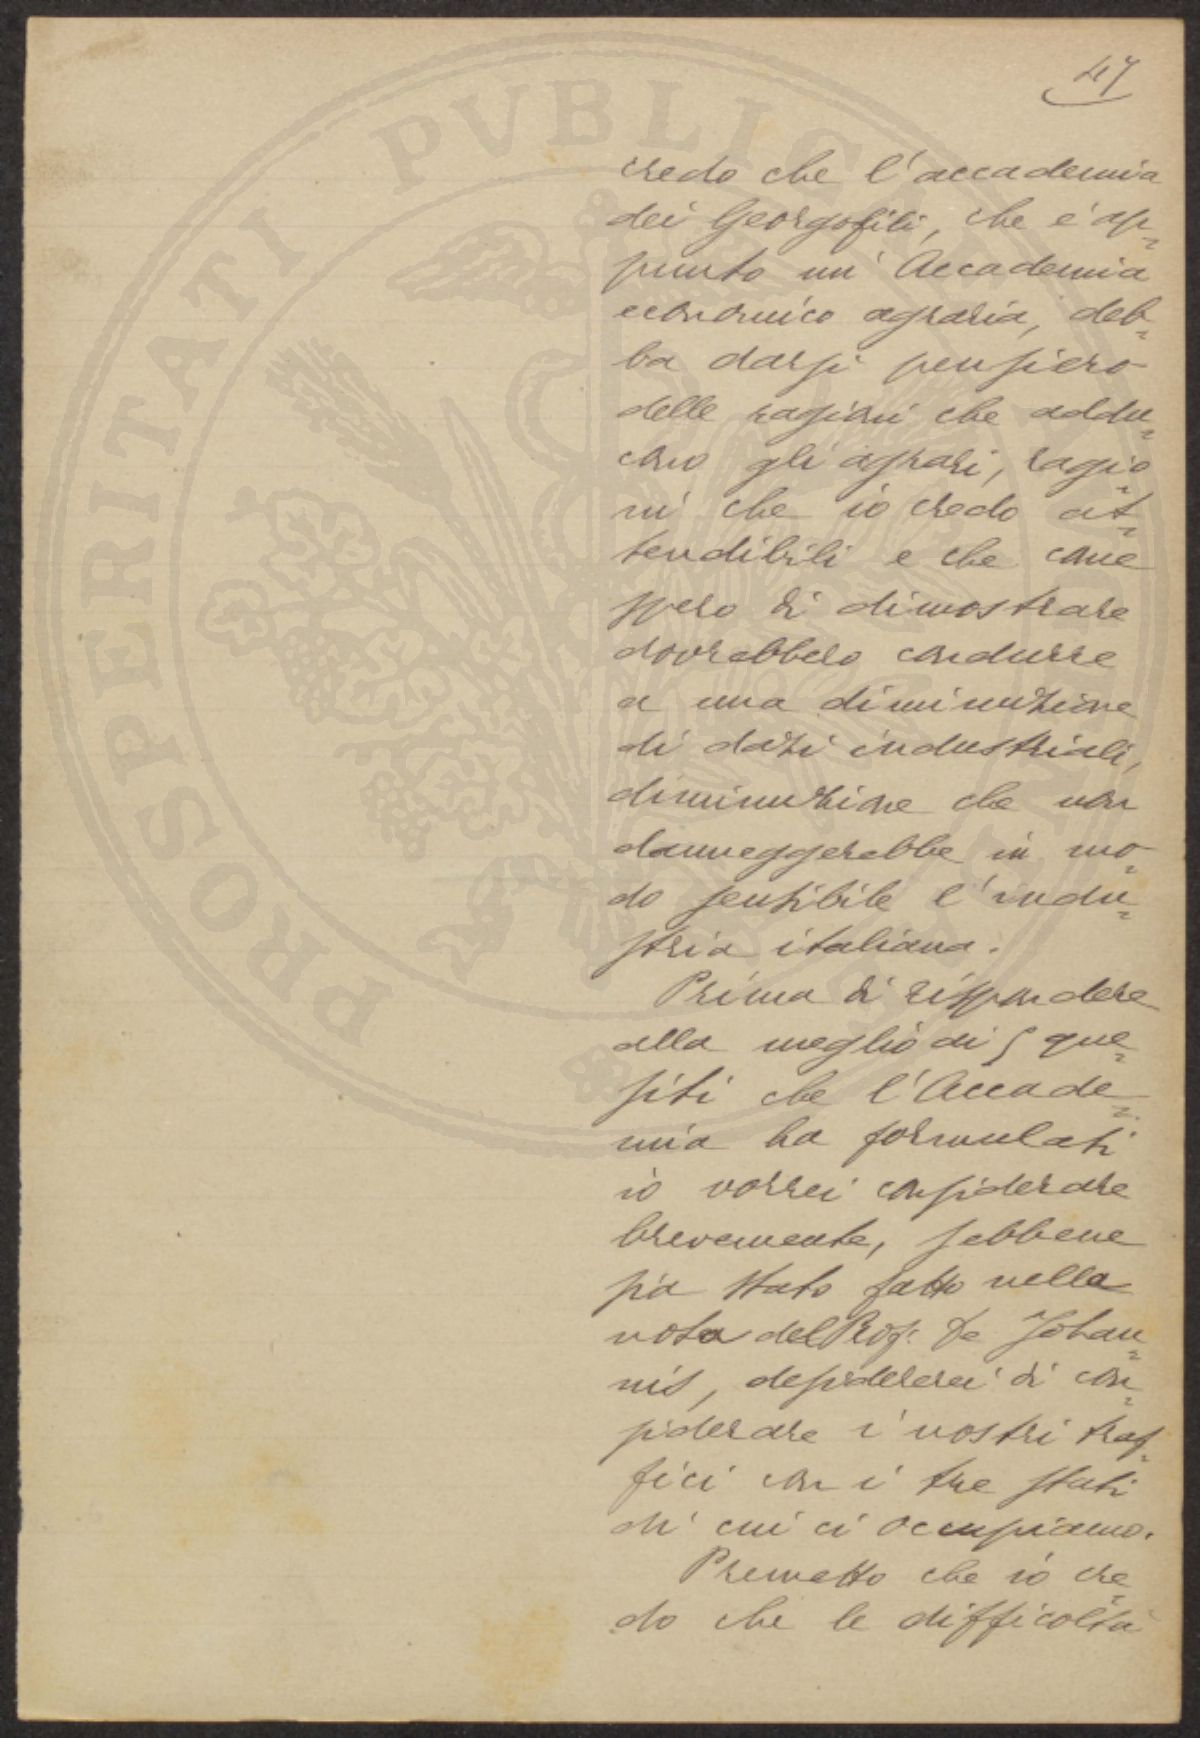 47
credo che l'accademia
dei Georgofili, che è ap=
punto un'Accademia
economico agraria, deb=
ba darsi pensiero
delle ragioni che addu=
cono gli agrari, ragio=
ni che io credo at=
tendibili e che come
spero di dimostrare
dovrebbero condurre
a una diminuzione
di dazi industriali,
diminuzione che non
danneggerebbe in mo=
do sensibile l'indu=
stria italiana.
Prima di rispondere
alla meglio ai 5 que=
siti che l'Accade=
mia ha formulati
io vorrei considerare
brevemente, sebbene
sia stato fatto nella
nota del Prof. De Johan=
nis, desidererei di con=
siderare i nostri traf=
fici con i tre stati
di cui ci occupiamo.
Premetto che io cre=
do che le difficoltà
PROSPERITATI PVBLICAE